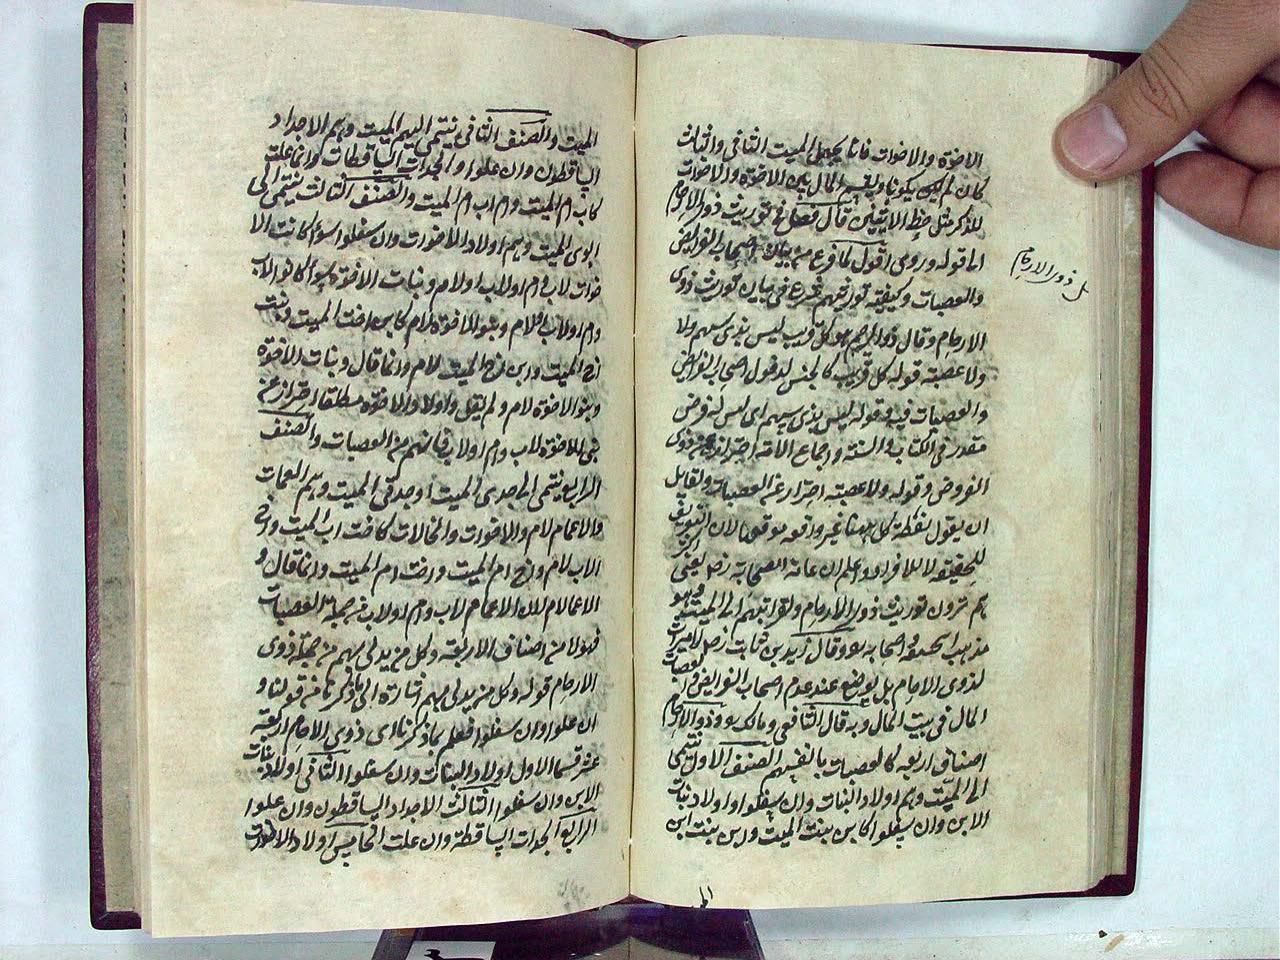 الاخوة والاخوات فانا نجعل الميت الثانى والثالث
كان لم يكن يكونا ويقسم المال بين الاخوة والاخوات
للذكر مثل حظ الانثيين قال فصل فى توريث ذوى الارحام
اما قوله وروى اقول لما فرغ من بيان اصحاب الفرايض
والعصبات وكيفية توريثهم شرع فى بيان توريث ذوى
الارحام وقال ذو الرحم هو كل قريب ليس بذى سهم ولا
ولا عصبة قوله كل قريب كالجنس لدخول اصحاب الفرايض
والعصبات فيه وقوله ليس بذى سهم اى ليس له فرض
مقدر فى الكتاب والسنة واجماع الامة احتراز عن ذوى
الفروض وقوله ولا عصبة احتراز عن العصبات ولقايل
ان يقول لفظة كل ههنا غير واقع موقعها لان التعريف
للحقيقة لا للافراد واعلم ان عامة الصحابة رض
هم يرون توريث ذوى الارحام ولقرابتهم الى الميت وهو
مذهب ابى حنيفة واصحابه وقال زيد بن ثابت رض لا ميراث
لذوى الارحام بل يوضع عند عدم اصحاب الفرايض والعصبات
المال فى بيت المال وبه قال الشافعى ومالك وذو الارحام
اصناف اربعة كالعصبات بانفسهم الصنف الاول ينتمى
الى الميت وهم اولاد البنات وان سفلوا واولاد بنات
الابن وان سفلوا كابن بنت الميت وابن بنت ابن
ذوى الارحام
الميت والصنف الثانى ينتمى اليهم الميت وهم الاجداد
الساقطون وان علوا والجدات الساقطات وان علت
كاب ام الميت وام اب ام الميت والصنف الثالث ينتمى الى
ابوى الميت وهم اولاد الاخوات وان سفلوا سواء كانت الا
خوات لاب وام او لاب او لام وبنات الاخوة سواء كانوا لاب
وام او لاب او لام وبنو الاخوة لام كابن اخت الميت وبنت
اخ الميت وابن اخ الميت لام وانما قال وبنات الاخوة
وبنو الاخوة لام ولم يقل واولاد الاخوة مطلقا احترازا عن
بنى الاخوة لاب وام او لاب فانهم من العصبات والصنف
الرابع ينتمى الى جدى الميت او جدتى الميت وهم العمات
والاعمام لام والاخوات والخالات كاخت اب الميت واخ
الاب لام واخ ام الميت واخت ام الميت وانما قال و
الاعمام لام لان الاعمام لاب وام او لاب من جملة العصبات
فهولا من اصناف الاربعة وكل من يدلى بهم من جملة ذوى
الارحام قوله وكل من يدلى بهم اشارة الى ما ذكرنا من قولنا و
ان علوا وان سفلوا فعلم بما ذكرنا ان ذوى الارحام اربعة
عشر قسما الاول اولاد البنات وان سفلوا الثانى اولاد بنات
الابن وان سفلوا الثالث الاجداد الساقطون وان علوا
الرابع الجدات الساقطة وان علت الخامس اولاد الاخوات